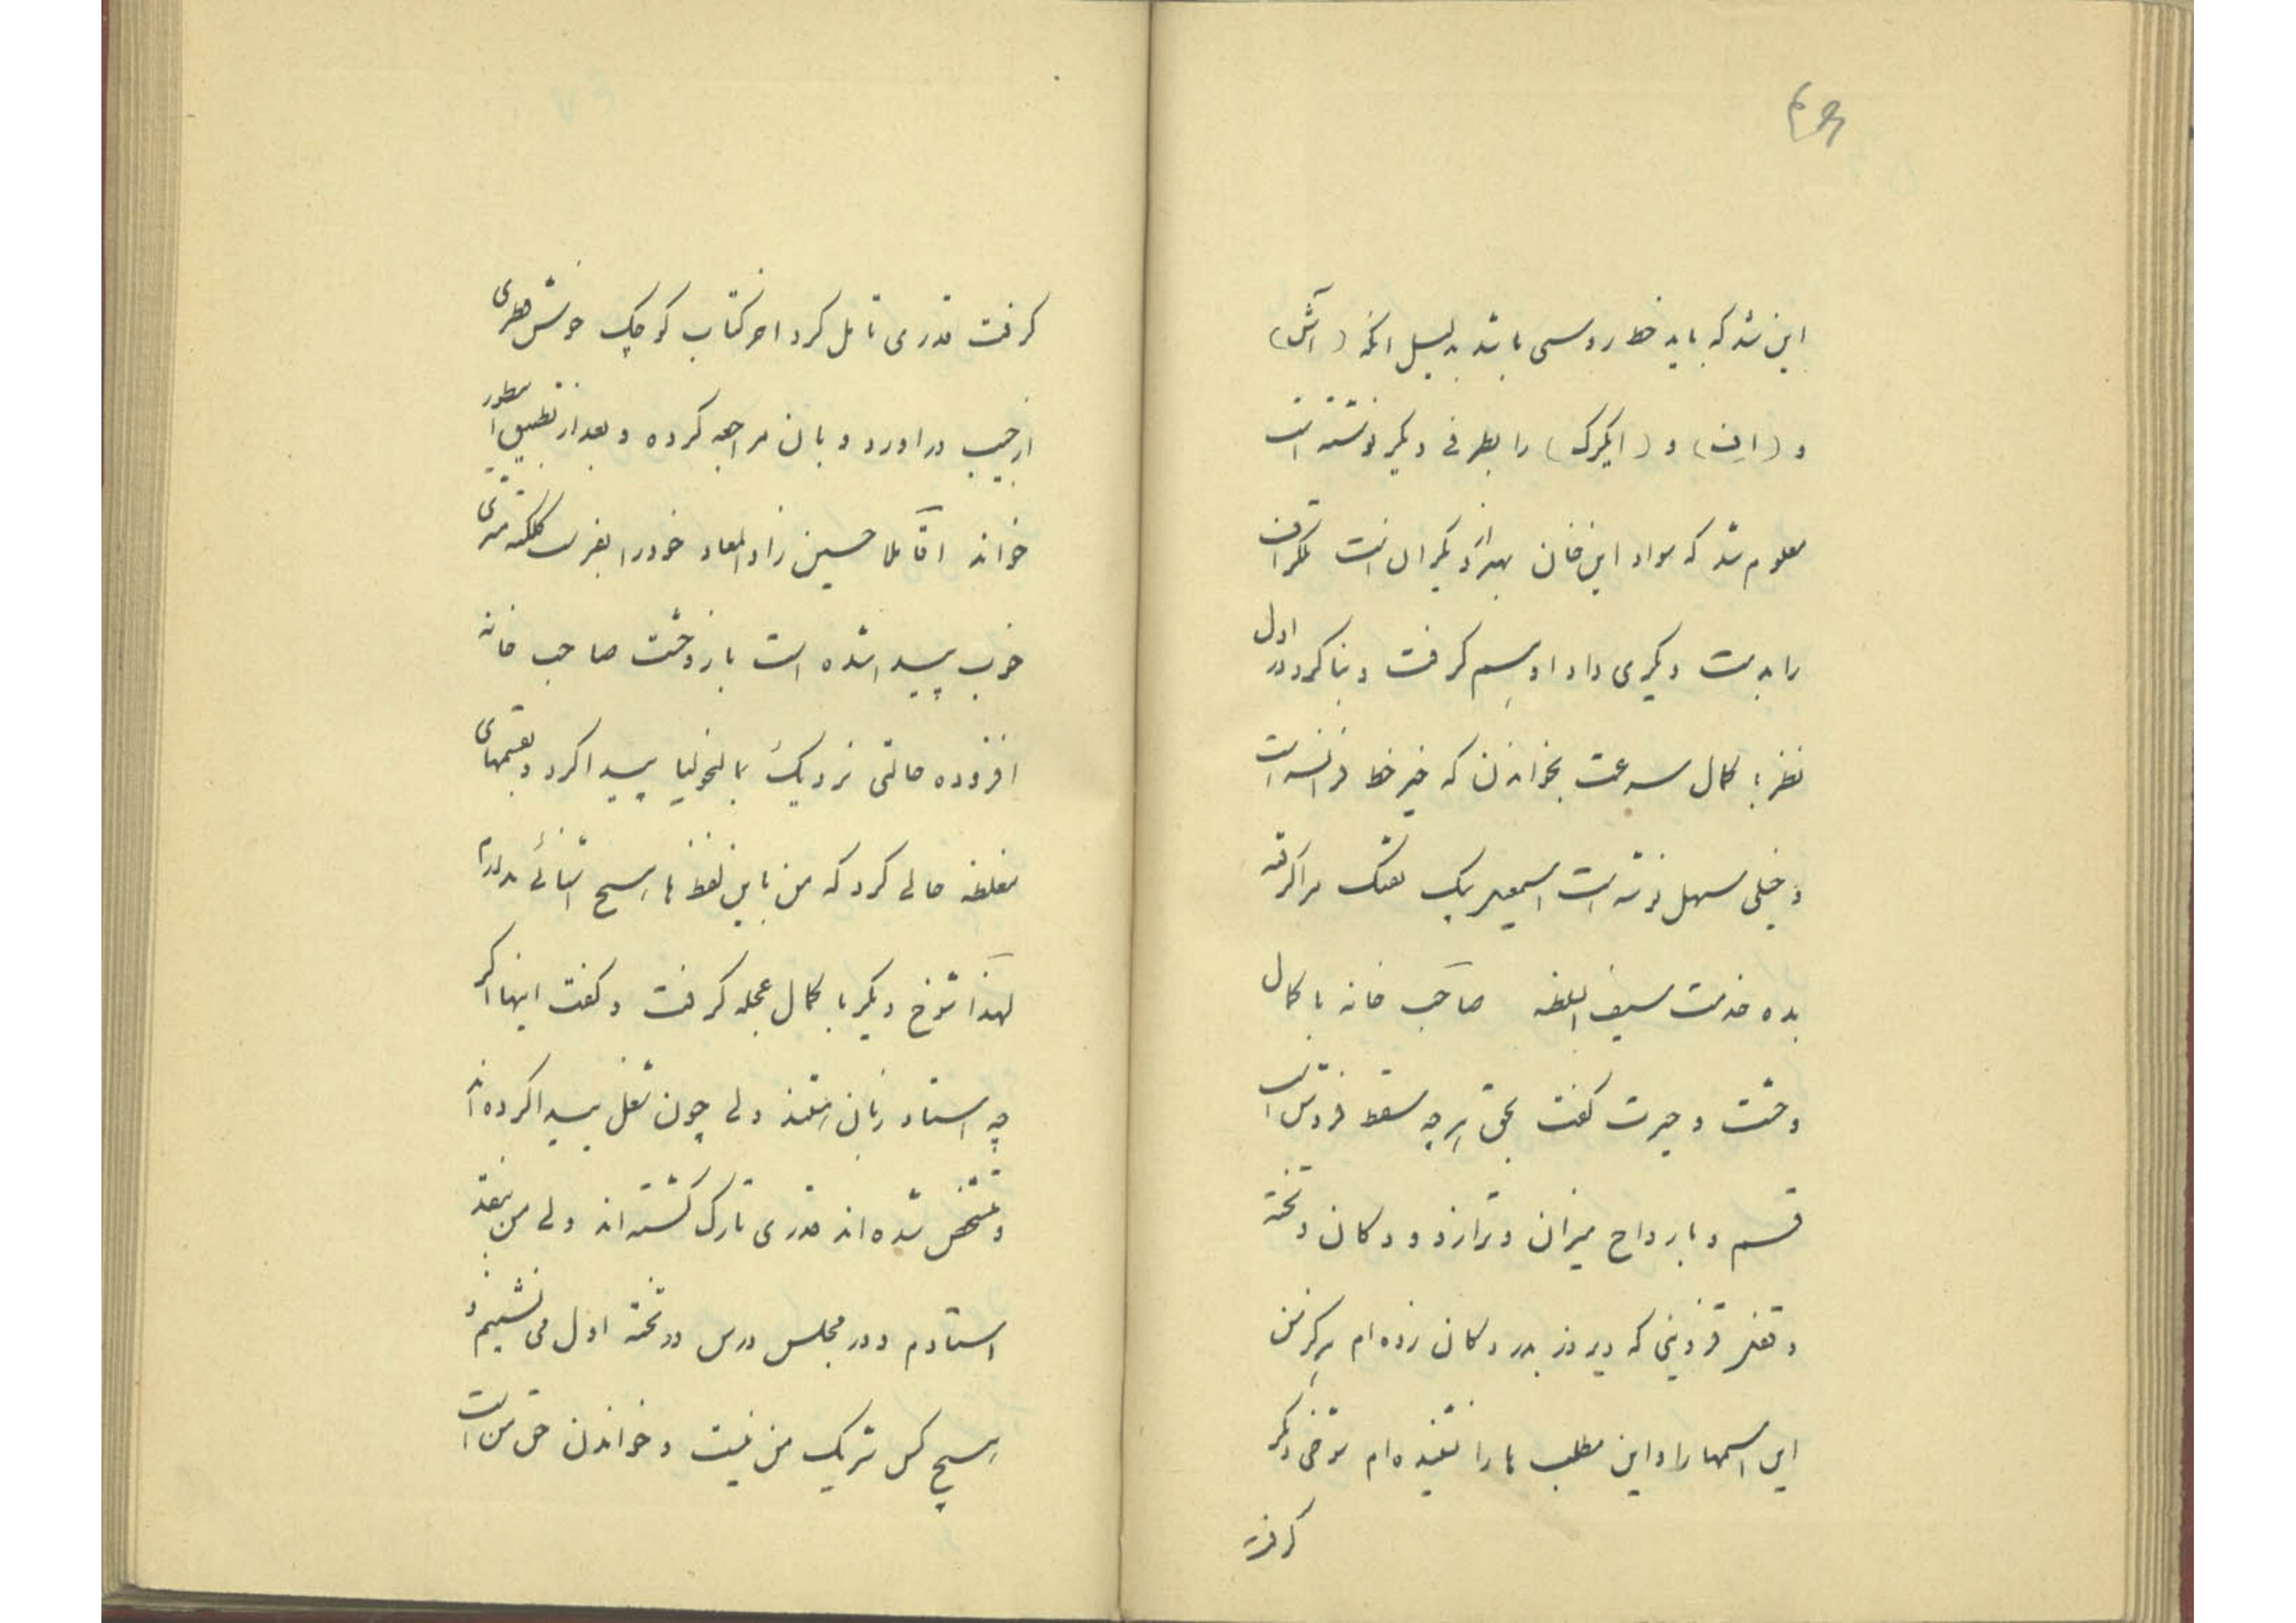 این شد که باید خط روسی باشد بدلیل انکه (آش)
و (این) و (ایکرک) را بطرفی دیکر نوشته است
معلوم شد که سواد این خان بهتر از دیکران است تلکراف
را بدست دیکری داد او بسم کرفت و بنا کرد در اول
نظر با کمال سرعت بخواندن که خیر خط فرانسه است
و خیلی سهل نوشته است اسمعیل بیک تفنک مرا کرفته
بده خدمت سیف السلطنه صاحب خانه با کمال
وحشت و حیرت کفت بحق هرچه سقط فروش است
قسم و بارواح میزان و ترازو و دکان و تخته
و تغیر قزوینی که دیروز بدر دکان زده ام هرکز من
این اسمها را و این مطلب ها را نشنیده ام شوخی دیکر
کرفت
کرفت قدری تامل کرد اخر کتاب کوچک خوش
از جیب دراورد و بان مراجعه کرده و بعد از تطبیق اسطور
خواند اقا ملا حسین زاد المعاد خود را بفرست کلکته مشتری
خوب پیدا شده است باز وحشت صاحب خانه
افزوده حالتی نزدیک بمالیخولیا پیدا کرد و بقسمهای
مغلظه حالی کرد که من باین لفظ ها هیچ اشنائی ندارم
لهذا شوخ دیکر با کمال عجله کرفت و کفت اینها اکر
چه استاد زبان هستند ولی چون شغل پیدا کرده اند
و متشخص شده اند قدری تارک کشته اند ولی من
استادم و در مجلس درس در تخته اول می نشینم و
هیچ کس شریک من نیست و خواندن حق من است